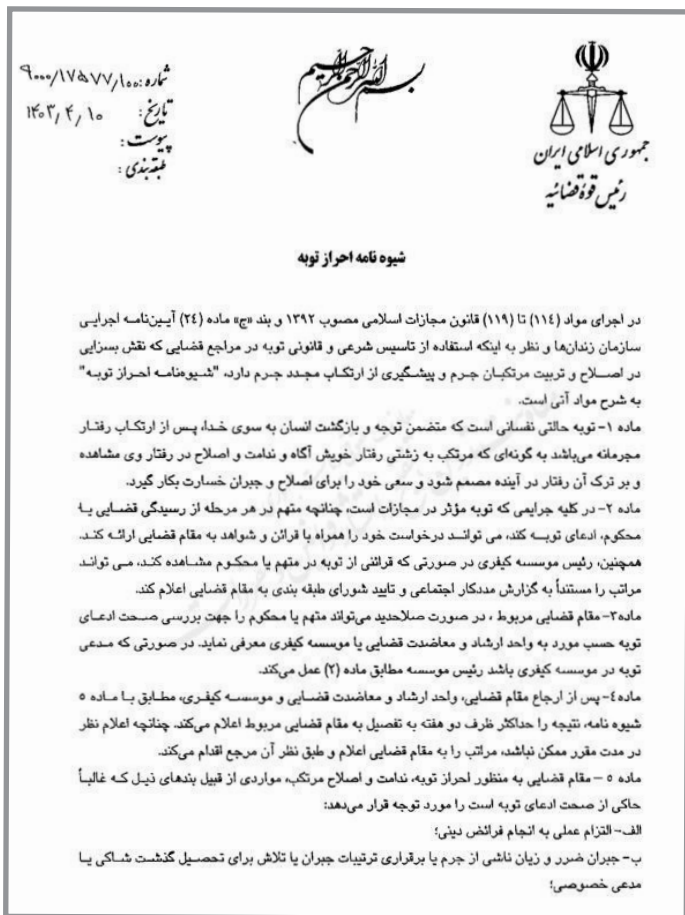 بسم الله الرحمن الرحیم
جمهوری اسلامی ایران
رئیس قوهٔ قضائیه
شماره: ۹۰۰۰/۱۷۵۷۷/۱۰۰
تاریخ: ۱۴۰۳/۴/۱۰
پیوست:
طبقه‌بندی:
شیوه نامه احراز توبه
در اجرای مواد (۱۱٤) تا (۱۱۹) قانون مجازات اسلامی مصوب ۱۳۹۲ و بند «ج» ماده (۲٤) آیین‌نامه اجرایی
سازمان زندان‌ها و نظر به اینکه استفاده از تاسیس شرعی و قانونی توبه در مراجع قضایی که نقش بسزایی
در اصلاح و تربیت مرتکبان جرم و پیشگیری از ارتکاب مجدد جرم دارد، "شیوه‌نامه احراز توبه"
به شرح مواد آتی است.
ماده ۱- توبه حالتی نفسانی است که متضمن توجه و بازگشت انسان به سوی خدا، پس از ارتکاب رفتار
مجرمانه می‌باشد به گونه‌ای که مرتکب به زشتی رفتار خویش آگاه و ندامت و اصلاح در رفتار وی مشاهده
و بر ترک آن رفتار در آینده مصمم شود و سعی خود را برای اصلاح و جبران خسارت بکار گیرد.
ماده ۲- در کلیه جرایمی که توبه مؤثر در مجازات است، چنانچه متهم در هر مرحله از رسیدگی قضایی یا
محکوم، ادعای توبه کند، می تواند درخواست خود را همراه با قرائن و شواهد به مقام قضایی ارائه کند.
همچنین، رئیس موسسه کیفری در صورتی که قرائنی از توبه در متهم یا محکوم مشاهده کند، می تواند
مراتب را مستنداً به گزارش مددکار اجتماعی و تایید شورای طبقه بندی به مقام قضایی اعلام کند.
ماده۳- مقام قضایی مربوط ، در صورت صلاحدید می‌تواند متهم یا محکوم را جهت بررسی صحت ادعای
توبه حسب مورد به واحد ارشاد و معاضدت قضایی یا موسسه کیفری معرفی نماید. در صورتی که مدعی
توبه در موسسه کیفری باشد رئیس موسسه مطابق ماده (۲) عمل می‌کند.
ماده٤- پس از ارجاع مقام قضایی، واحد ارشاد و معاضدت قضایی و موسسه کیفری، مطابق با ماده ٥
شیوه نامه، نتیجه را حداکثر ظرف دو هفته به تفصیل به مقام قضایی مربوط اعلام می‌کند. چنانچه اعلام نظر
در مدت مقرر ممکن نباشد، مراتب را به مقام قضایی اعلام و طبق نظر آن مرجع اقدام می‌کند.
ماده ٥ – مقام قضایی به منظور احراز توبه، ندامت و اصلاح مرتکب، مواردی از قبیل بندهای ذیل که غالباً
حاکی از صحت ادعای توبه است را مورد توجه قرار می‌دهد:
الف- التزام عملی به انجام فرائض دینی؛
ب- جبران ضرر و زیان ناشی از جرم یا برقراری ترتیبات جبران یا تلاش برای تحصیل گذشت شاکی یا
مدعی خصوصی؛